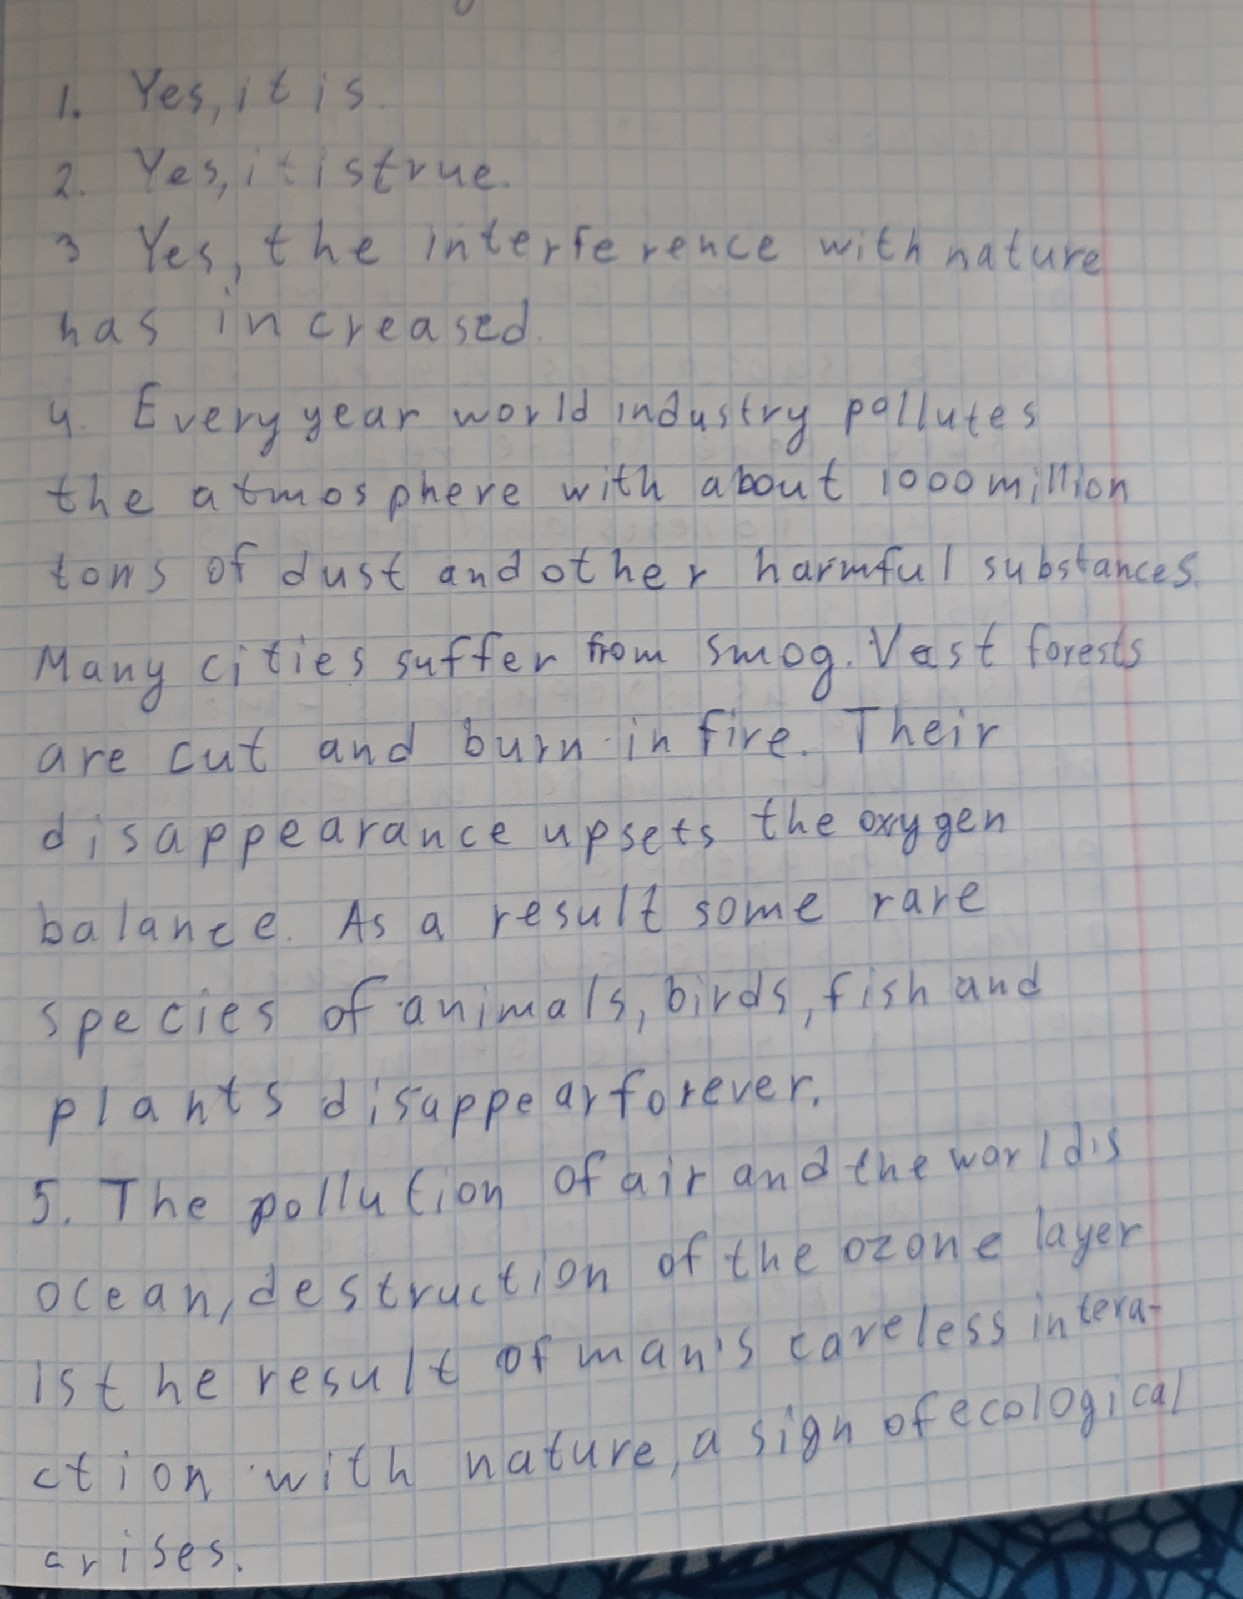 1. Yes, it is.
2. Yes, it is true.
3 Yes, the interference with nature
has increased.
4. Every year world industry pollutes
the atmosphere with about 1000 million
tons of dust and other harmful substances.
Many cities suffer from smog. Vast forests
are cut and burn in fire. Their
disappearance upsets the oxygen
balance. As a result some rare
species of animals, birds, fish and
plants disappear forever.
5. The pollution of air and the world is
ocean, destruction of the ozone layer
is the result of man's careless intera-
ction with nature, a sign of ecological
crises.